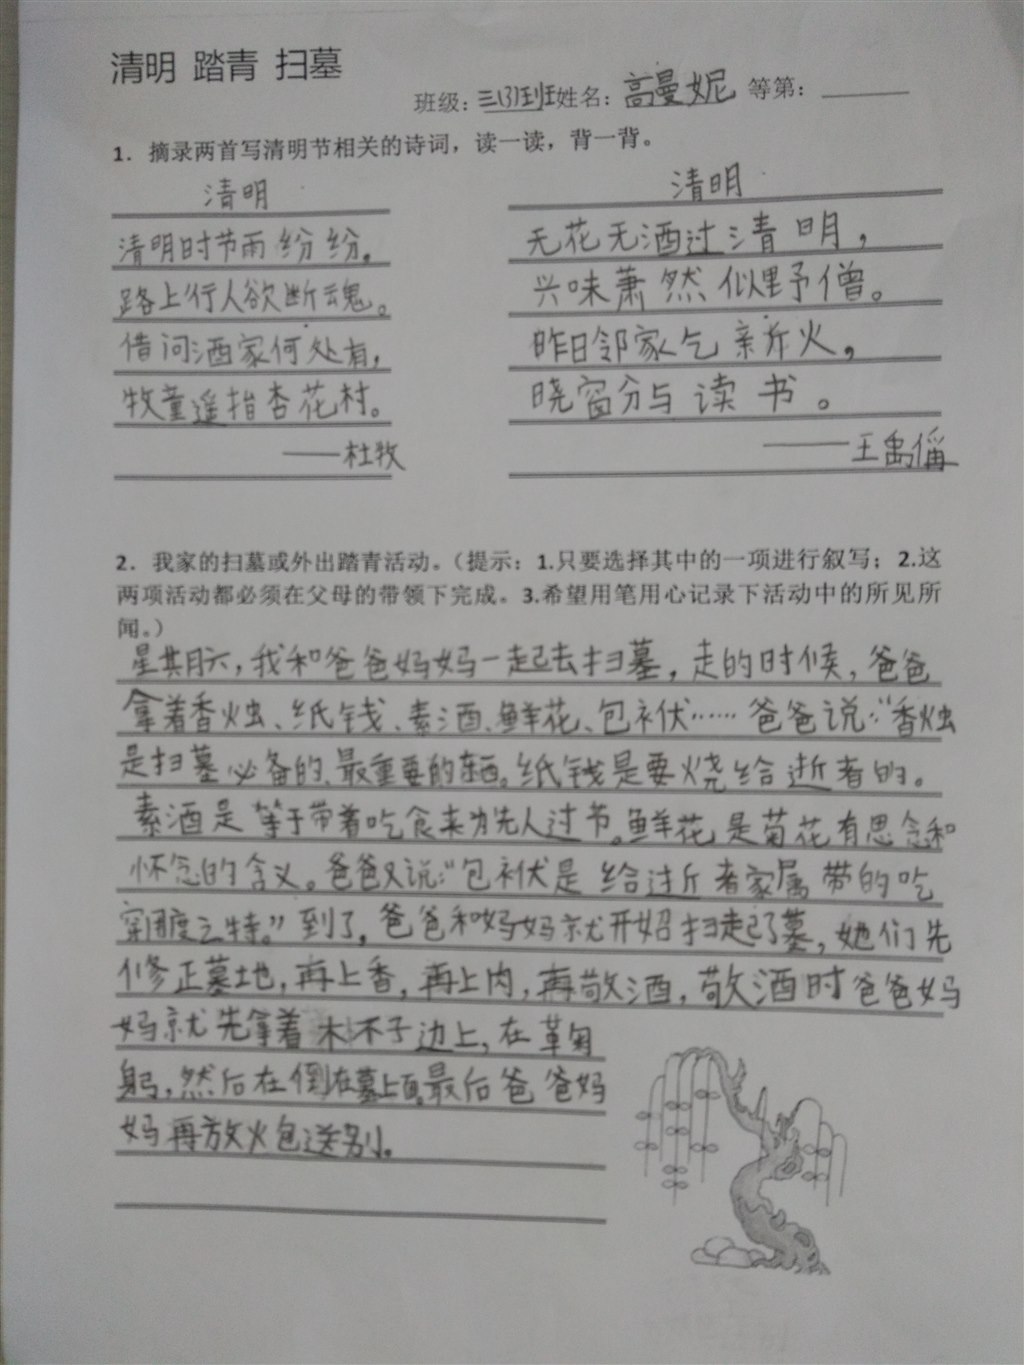 清明 踏青 扫墓
班级：三(3)班姓名：高曼妮 等第：
1．摘录两首写清明节相关的诗词，读一读，背一背。
清明
清明时节雨纷纷，
路上行人欲断魂。
借问酒家何处有，
牧童遥指杏花村。
——杜牧
清明
无花无酒过清明，
兴味萧然似野僧。
昨日邻家乞新火，
晓窗分与读书。
——王禹偁
2．我家的扫墓或外出踏青活动。（提示：1.只要选择其中的一项进行叙写；2.这
两项活动都必须在父母的带领下完成。3.希望用笔用心记录下活动中的所见所
闻。）
星期六，我和爸爸妈妈一起去扫墓，走的时候，爸爸
拿着香烛、纸钱、素酒、鲜花、包袱……爸爸说：“香烛
是扫墓必备的、最重要的东西。纸钱是要烧给逝者的。
素酒是等于带着吃食来为先人过节。鲜花是菊花有思念和
怀念的含义。爸爸又说：“包袱是给过斤者家属带的吃
穿用度之特。”到了，爸爸和妈妈就开始扫起了墓，她们先
修正墓地，再上香，再上肉，再敬酒，敬酒时爸爸妈
妈就先拿着 不子边上，在
躬，然后在倒在墓上面，最后爸爸妈
妈再放火包送别。